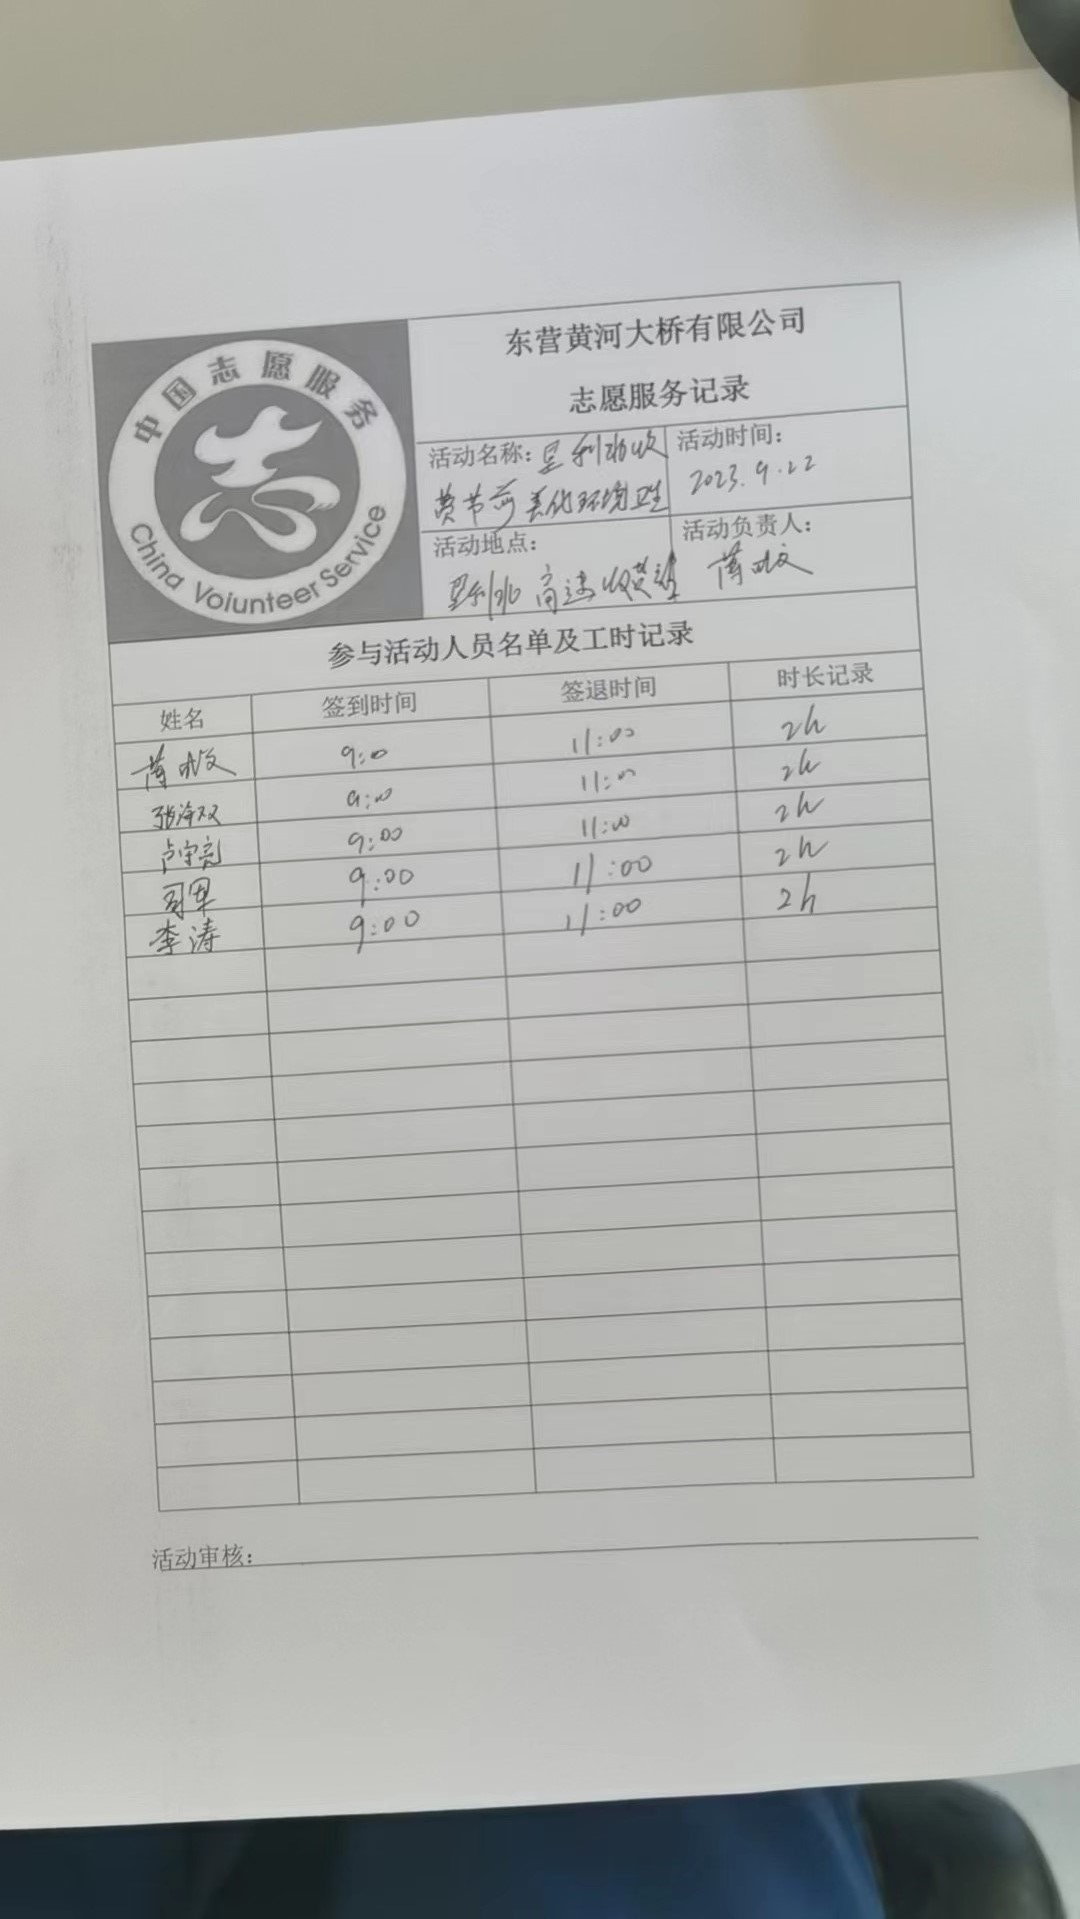 中国志愿服务
China Volunteer Service
东营黄河大桥有限公司
志愿服务记录
活动名称：垦利北收
费节前美化环境卫生
活动时间：
2023.9.22
活动地点：
垦利北高速收费站
活动负责人：
参与活动人员名单及工时记录
姓名 签到时间 签退时间 时长记录
9:0 11:00 2h
9:00 11:00 2h
卢宁亮 9:00 11:00 2h
9:00 11:00 2h
李涛 9:00 11:00 2h
活动审核：